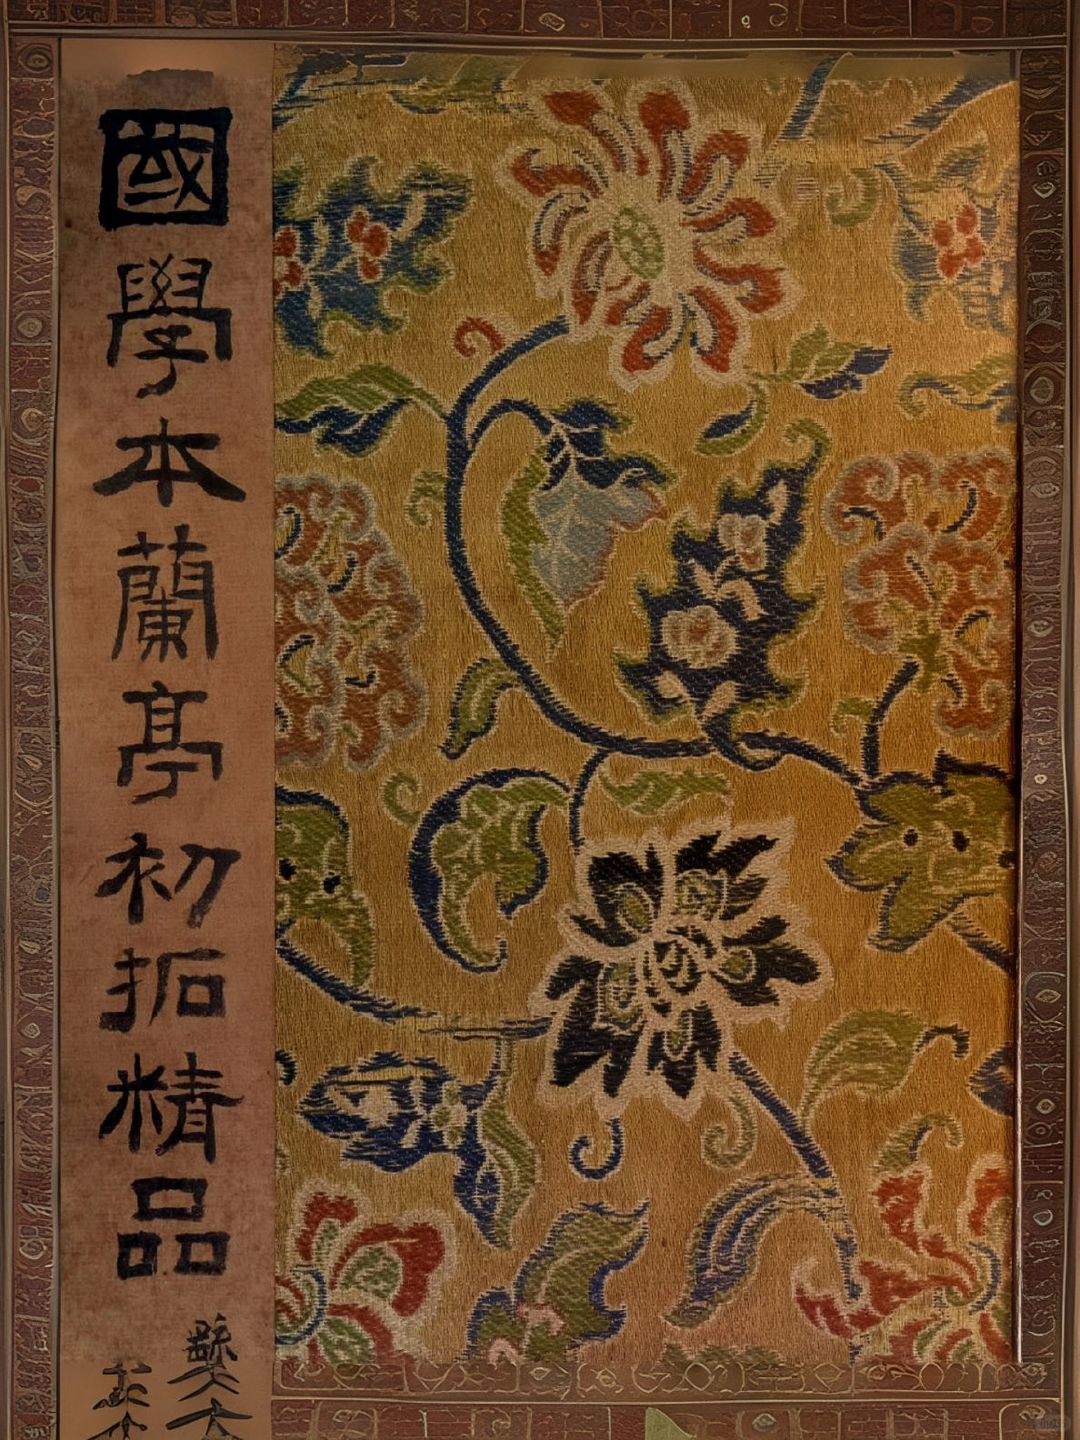 國學本蘭亭初拓精品